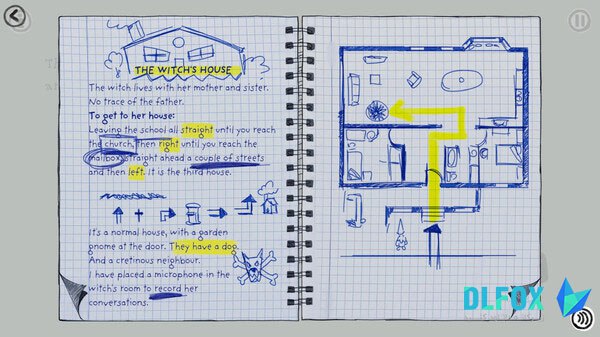 THE WITCH'S HOUSE
The witch lives with her mother and sister.
No trace of the father.
To get to her house:
Leaving the school all straight until you reach
the church. Then right until you reach the
mailbox, straight ahead a couple of streets
and then left. It is the third house.
It's a normal house, with a garden
gnome at the door. They have a dog.
And a cretinous neighbour.
I have placed a microphone in the
witch's room to record her
conversations.
DLFOX